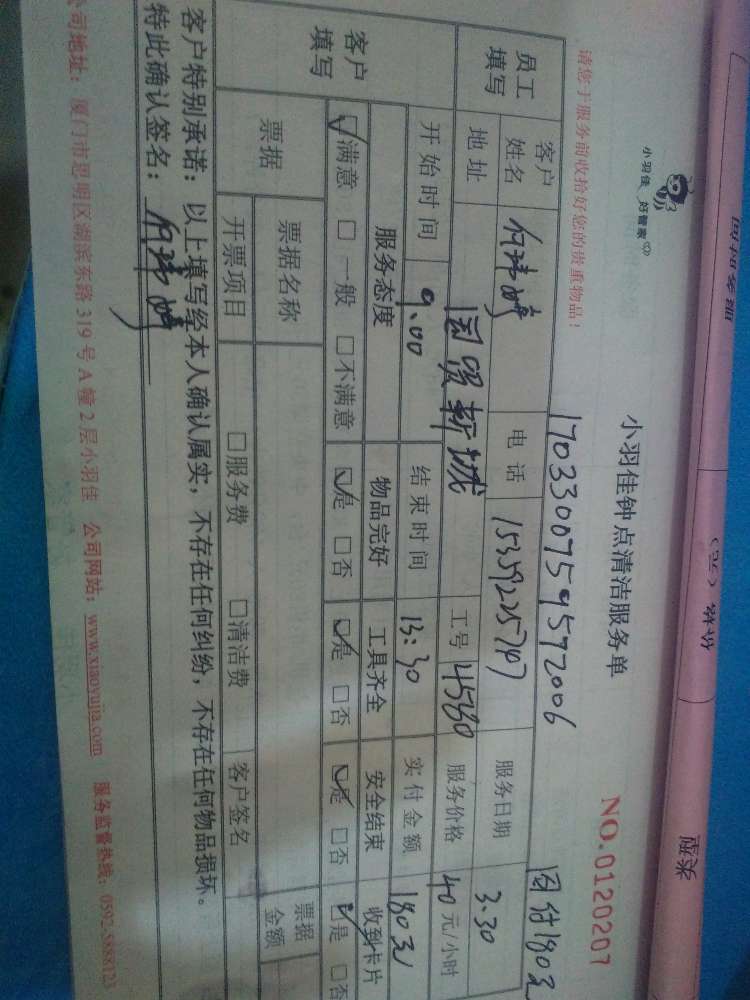 小羽佳 好管家
小羽佳钟点清洁服务单
NO.0120207
请您于服务前收拾好您的贵重物品！
17033007595972006
员工填写 客户姓名 电话 15359225747 服务日期 3.30
地址 国贸新城 工号 45360 服务价格 40元/小时
客户填写 开始时间 9.00 结束时间 13:30 实付金额 180元
服务态度 物品完好 工具齐全 安全结束 收到卡片
☑满意 □一般 □不满意 ☑是 □否 ☑是 □否 ☑是 □否 ☑是 □否
票据 票据名称 票据金额
开票项目 □服务费 □清洁费 客户签名
客户特别承诺：以上填写经本人确认属实，不存在任何纠纷，不存在任何物品损坏。
特此确认签名：
公司地址：厦门市思明区湖滨东路319号A幢2层小羽佳 公司网站：www.xiaoyujia.com 服务监督热线：0592-5888123